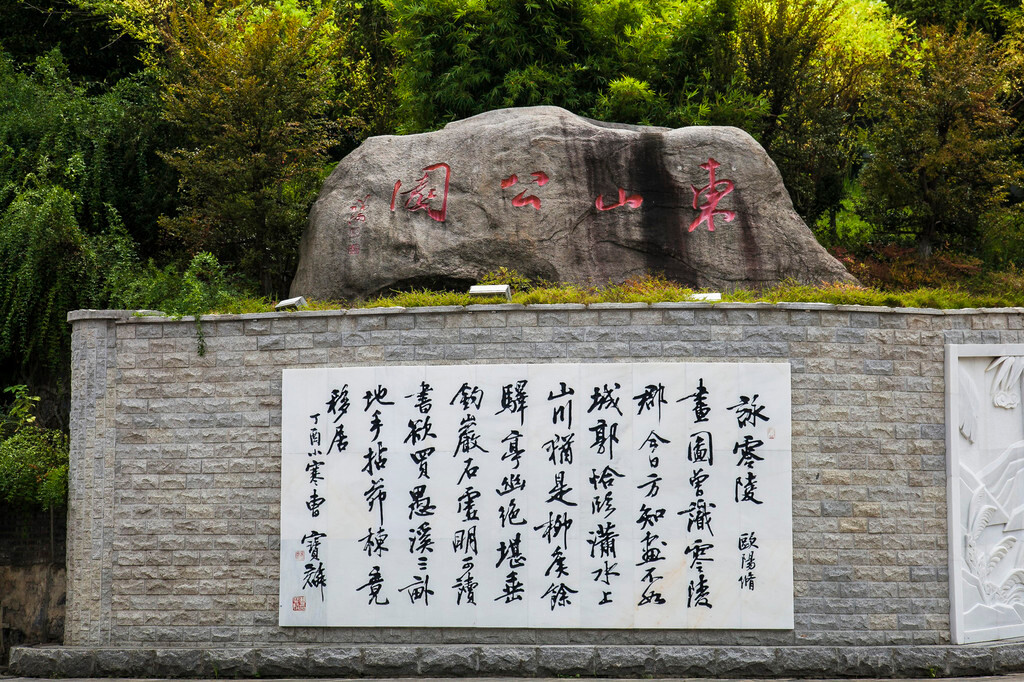 東山公園
詠零陵 歐陽脩
畫圖曾識零陵
郡今日方知畫不如
城郭恰臨瀟水上
山川猶是柳矦餘
驛亭幽絕堪垂
釣巖石虛明可讀
書欲買愚溪三畝
地手拈茅棟竟
移居
丁酉小寒曹寶麟